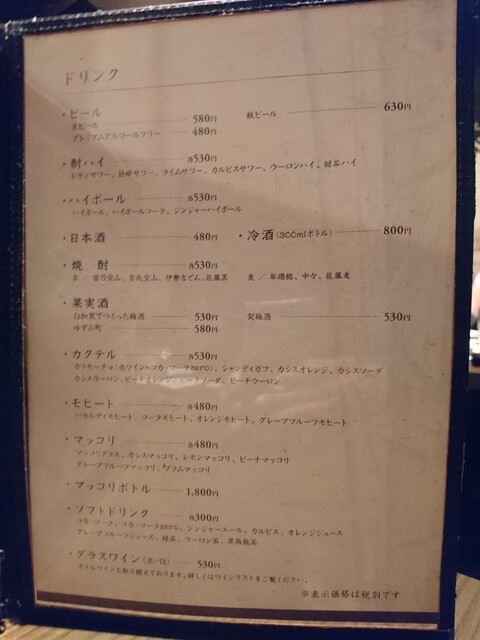 ドリンク
・ビール
生ビール 580円 瓶ビール 630円
プレミアムアルコールフリー 480円
・酎ハイ 各530円
レモンサワー、巨峰サワー、ライムサワー、カルピスサワー、ウーロンハイ、緑茶ハイ
・ハイボール 各530円
ハイボール、ハイボールコーラ、ジンジャーハイボール
・日本酒 480円 ・冷酒(300mlボトル) 800円
・焼 酎 各530円
芋 / 富乃宝山、吉兆宝山、伊勢吉どん、佐藤黒 麦 / 牟禮鶴、中々、佐藤麦
・果実酒
白加賀でつくった梅酒 530円 梅酒 530円
ゆず小町 580円
・カクテル 各530円
カリモーチョ(赤ワイン+コカ・コーラzero)、シャンディガフ、カシスオレンジ、カシスソーダ
カシスウーロン、ピーチオレンジ、ピーチソーダ、ピーチウーロン
・モヒート 各480円
バカルディモヒート、コーラモヒート、オレンジモヒート、グレープフルーツモヒート
・マッコリ 各480円
マッコリグラス、カシスマッコリ、レモンマッコリ、ピーチマッコリ
グレープフルーツマッコリ、プラムマッコリ
・マッコリボトル 1,800円
・ソフトドリンク 各300円
コカ・コーラ、コカ・コーラzero、ジンジャーエール、カルピス、オレンジジュース
グレープフルーツジュース、緑茶、ウーロン茶、黒烏龍茶
・グラスワイン(赤・白) 530円
ボトルワインも取り揃えております。詳しくはワインリストをご覧ください。
※表示価格は税別です